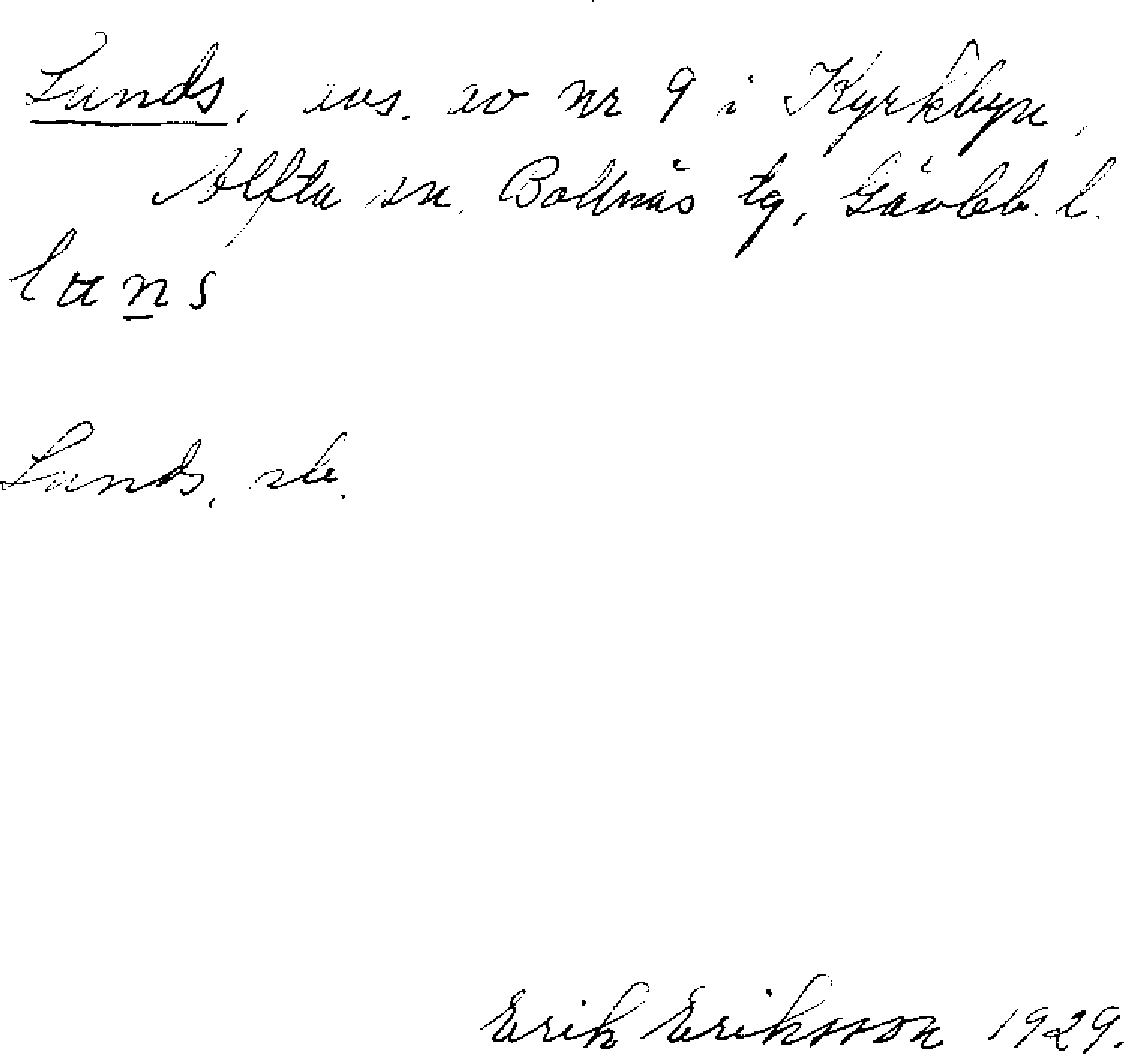 Lunds, evs. av nr 9 i Kyrkbyn,
Alfta sn. Bollnäs tg, Gävleb. l.
lans
Lunds,
Erik Eriksson 1929.